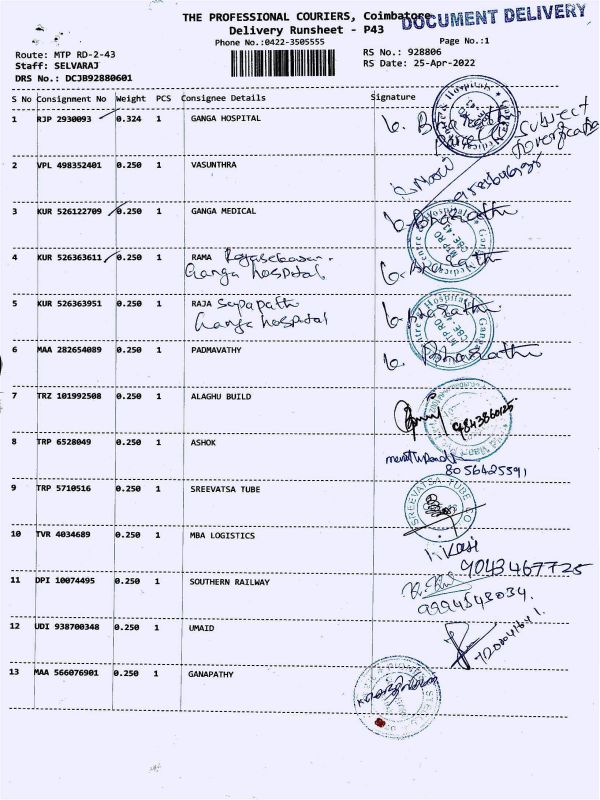 THE PROFESSIONAL COURIERS, Coimbatore
DOCUMENT DELIVERY
Delivery Runsheet - P43
Phone No.:0422-3505555
Page No.:1
Route: MTP RD-2-43
RS No.: 928806
Staff: SELVARAJ
RS Date: 25-Apr-2022
DRS No.: DCJB92880601
S No Consignment No Weight PCS Consignee Details Signature
1 RJP 2930093 0.324 1 GANGA HOSPITAL
Subject
2 VPL 498352401 0.250 1 VASUNTHRA
3 KUR 526122709 0.250 1 GANGA MEDICAL b. Bharathi
4 KUR 526363611 0.250 1 RAMA Rajasekaran.
Ganga hospital
5 KUR 526363951 0.250 1 RAJA Sapapathi b. Bharathi
Ganga hospital
6 MAA 282654089 0.250 1 PADMAVATHY b. Bharathi
7 TRZ 101992508 0.250 1 ALAGHU BUILD
9843860125
8 TRP 6528049 0.250 1 ASHOK
8056425591
9 TRP 5710516 0.250 1 SREEVATSA TUBE
SREEVATSA TUBE CO
10 TVR 4034689 0.250 1 MBA LOGISTICS
Kasi
9043467725
11 DPI 10074495 0.250 1 SOUTHERN RAILWAY
12 UDI 938700348 0.250 1 UMAID
13 MAA 566076901 0.250 1 GANAPATHY